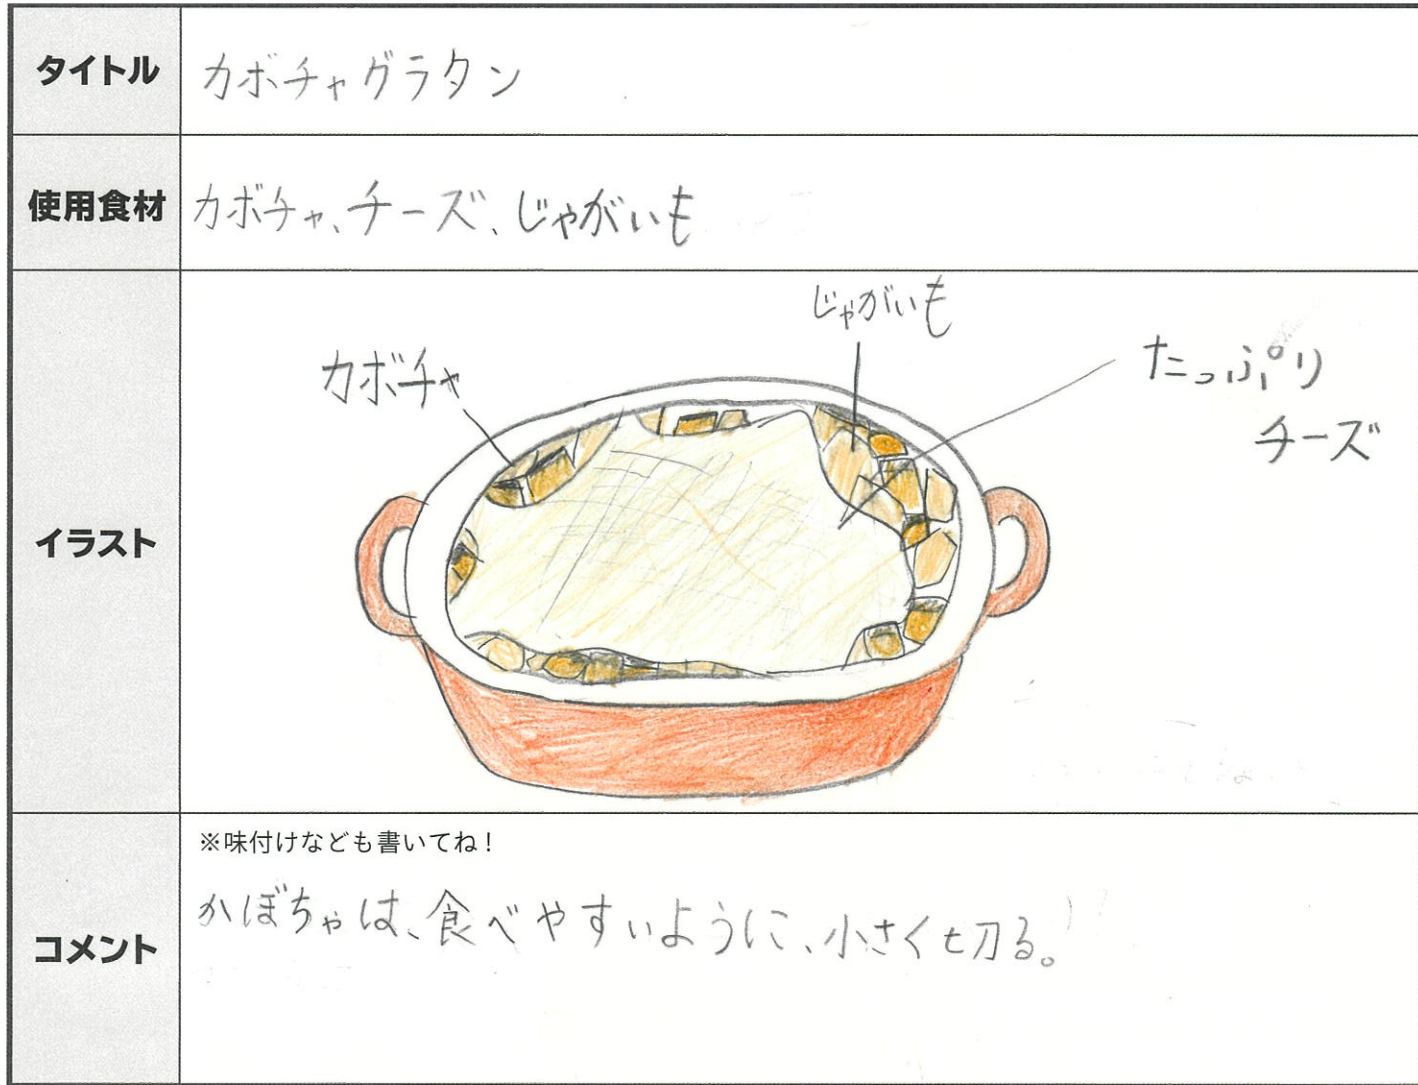 タイトル
カボチャグラタン
使用食材
カボチャ、チーズ、じゃがいも
イラスト
じゃがいも
カボチャ
たっぷり
チーズ
コメント
※味付けなども書いてね!
かぼちゃは、食べやすいように、小さく切る。